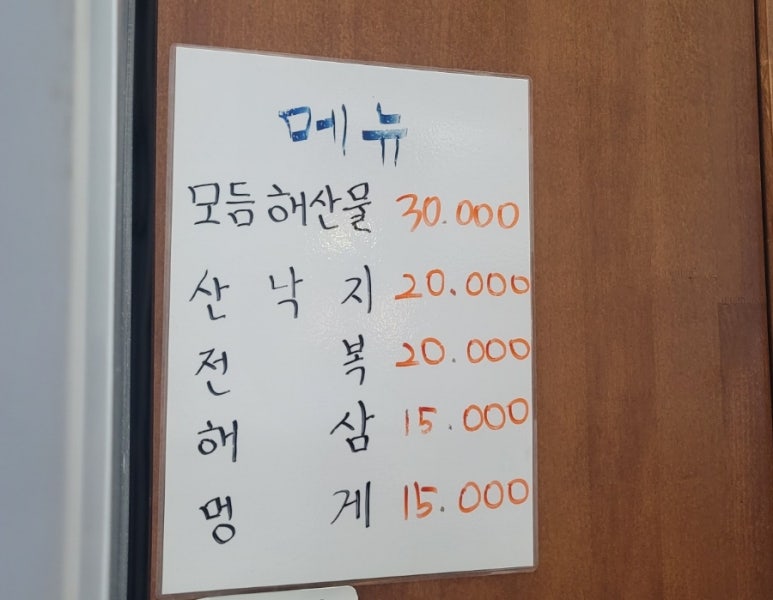 메뉴
모듬해산물 30.000
산낙지 20.000
전복 20.000
해삼 15.000
멍게 15.000